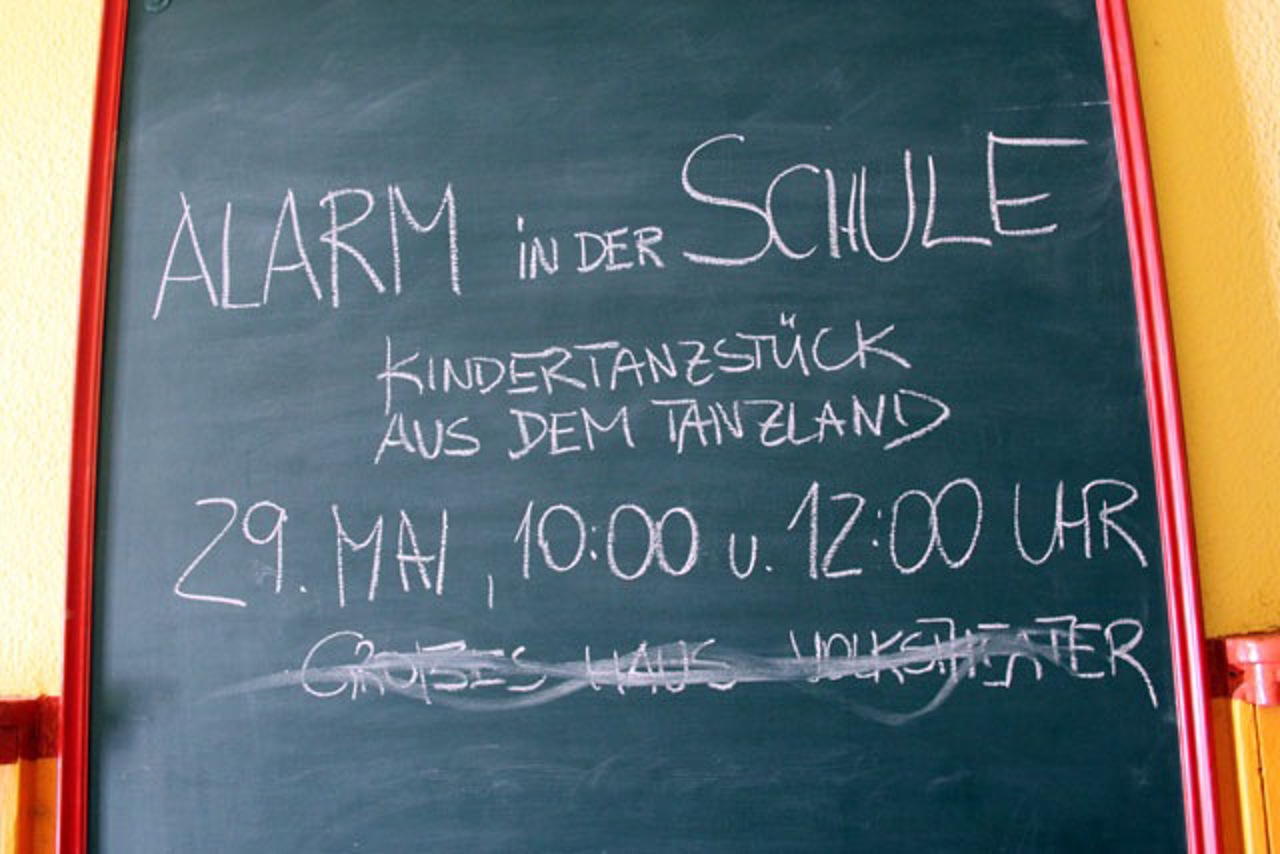 ALARM iN DER SCHULE
KINDERTANZSTÜCK
AUS DEM TANZLAND
29. MAI, 10:00 u. 12:00 UHR
GROßES HAUS VOLKSTHEATER